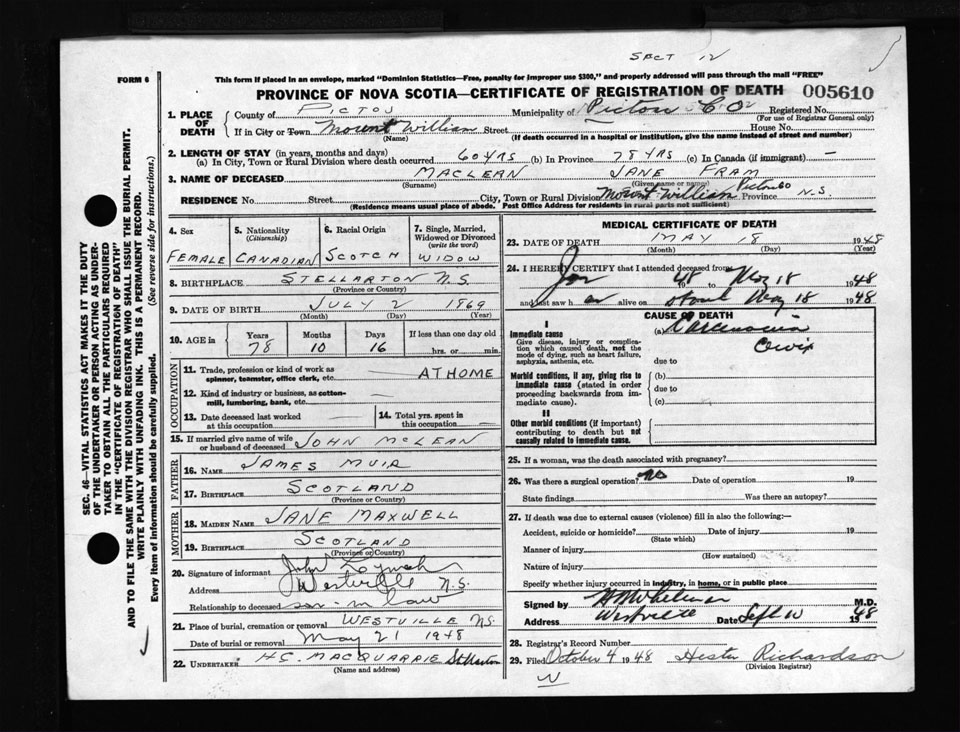 SPCT 12
FORM 6
This form if placed in an envelope, marked "Dominion Statistics—Free, penalty for improper use $300," and properly addressed will pass through the mail "FREE"
PROVINCE OF NOVA SCOTIA—CERTIFICATE OF REGISTRATION OF DEATH 005610
1. PLACE OF DEATH
County of PICTOU Municipality of Pictou CO Registered No.
(For use of Registrar General only)
If in City or Town Mount William Street House No.
(Name) (If death occurred in a hospital or institution, give the name instead of street and number)
2. LENGTH OF STAY (in years, months and days)
(a) In City, Town or Rural Division where death occurred 60 YRS (b) In Province 78 YRS (c) In Canada (if immigrant) —
3. NAME OF DECEASED MACLEAN JANE FRAM
(Surname) (Given name or name)
RESIDENCE No. Street City, Town or Rural Division Mount William Pictou Co Province N.S.
(Residence means usual place of abode. Post Office Address for residents in rural parts not sufficient)
4. Sex
FEMALE
5. Nationality
(Citizenship)
CANADIAN
6. Racial Origin
SCOTCH
7. Single, Married, Widowed or Divorced
(write the word)
WIDOW
8. BIRTHPLACE STELLARTON N.S.
(Province or Country)
9. DATE OF BIRTH JULY 2 1969
(Month) (Day) (Year)
10. AGE in Years Months Days If less than one day old
78 10 16 hrs. or min.
OCCUPATION
11. Trade, profession or kind of work as spinner, teamster, office clerk, etc. AT HOME
12. Kind of industry or business, as cotton-mill, lumbering, bank, etc. —
13. Date deceased last worked at this occupation —
14. Total yrs. spent in this occupation —
15. If married give name of wife or husband of deceased JOHN MCLEAN
FATHER
16. NAME JAMES MUIR
17. BIRTHPLACE SCOTLAND
(Province or Country)
MOTHER
18. MAIDEN NAME JANE MAXWELL
19. BIRTHPLACE SCOTLAND
(Province or Country)
20. Signature of informant John
Address Westville N.S.
Relationship to deceased son-in law
21. Place of burial, cremation or removal WESTVILLE N.S.
Date of burial or removal May 21 1948
22. UNDERTAKER H.S. MACQUARRIE Stellarton
(Name and address)
MEDICAL CERTIFICATE OF DEATH
23. DATE OF DEATH MAY 18 1948
(Month) (Day) (Year)
24. I HEREBY CERTIFY that I attended deceased from
Jan 1948 to May 18 1948
and last saw h er alive on about May 18 1948
CAUSE OF DEATH
I
Immediate cause
Give disease, injury or complication which caused death, not the mode of dying, such as heart failure, asphyxia, asthenia, etc.
(a) Carcinoma
Cervix
due to
Morbid conditions, if any, giving rise to immediate cause (stated in order proceeding backwards from immediate cause).
(b)
due to
(c)
II
Other morbid conditions (if important) contributing to death but not causally related to immediate cause.
25. If a woman, was the death associated with pregnancy?
26. Was there a surgical operation? No Date of operation 19
State findings Was there an autopsy?
27. If death was due to external causes (violence) fill in also the following:—
Accident, suicide or homicide? Date of injury 19
(State which)
Manner of injury
(How sustained)
Nature of injury
Specify whether injury occurred in industry, in home, or in public place
Signed by M.D.
Address Westville Date Sept 10 1948
28. Registrar's Record Number
29. Filed October 4 1948 Hester Richardson
(Division Registrar)
N
SEC. 46—VITAL STATISTICS ACT MAKES IT THE DUTY
OF THE UNDERTAKER OR PERSON ACTING AS UNDER-
TAKER TO OBTAIN ALL THE PARTICULARS REQUIRED
IN THE "CERTIFICATE OF REGISTRATION OF DEATH"
AND TO FILE THE SAME WITH THE DIVISION REGISTRAR WHO SHALL ISSUE THE BURIAL PERMIT.
WRITE PLAINLY WITH UNFADING INK. THIS IS A PERMANENT RECORD.
Every item of information should be carefully supplied. (See reverse side for instructions.)